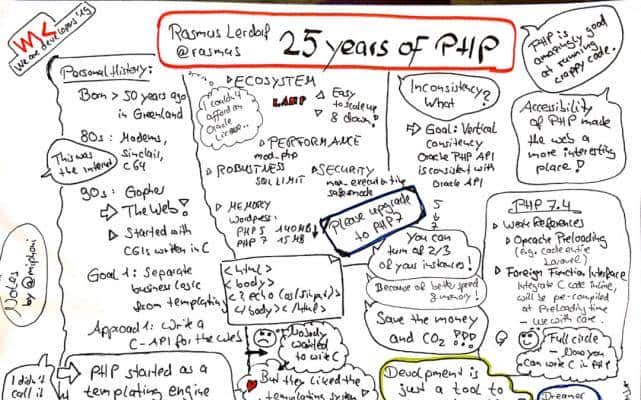 We are developers '19
Rasmus Lerdorf
@rasmus
25 years of PHP
PHP is
amazingly good
at running
crappy code.
Personal History:
Born > 50 years ago
in Greenland
80s: Modems,
Sinclair,
C64
This was
the Internet
90s: Gopher
The Web!
Started with
CGIs written in C
Goal 1: Separate
business logic
from templating
Approach 1: Write a
C-API for the web
Notes
by @miphoni
I didn't
call it
PHP started as a
templating engine
ECOSYSTEM
I couldn't
afford an
Oracle
License..
LAMP
Easy
to scale up
& down!
PERFORMANCE
mod-php
ROBUSTNESS
SQL LIMIT
SECURITY
non-executing
safemode
MEMORY
Wordpress:
PHP 5 140MB
PHP 7 15MB
Please upgrade
to PHP7
<html>
<body>
<?echo
</body></html>
Nobody
wanted
to write C
But they liked the
templating system
Inconsistency?
What
Goal: Vertical
consitency
Oracle PHP API
is consistent with
Oracle API
5
7
You can
turn off 2/3
of your instances!
Because of better speed
& memory!
Save the money
and CO2 !!!
Development is
just a tool to
Accessibility
of PHP made
the web a
more interesting
place!
PHP 7.4
Weak References
Opcache Preloading
(e.g. code entire
Laravel)
Foreign Function Interface
Integrate C code inline,
will be pre-compiled
at Preloading time
– use with care
Full circle
– Now you
can write C in PHP
Dreamer